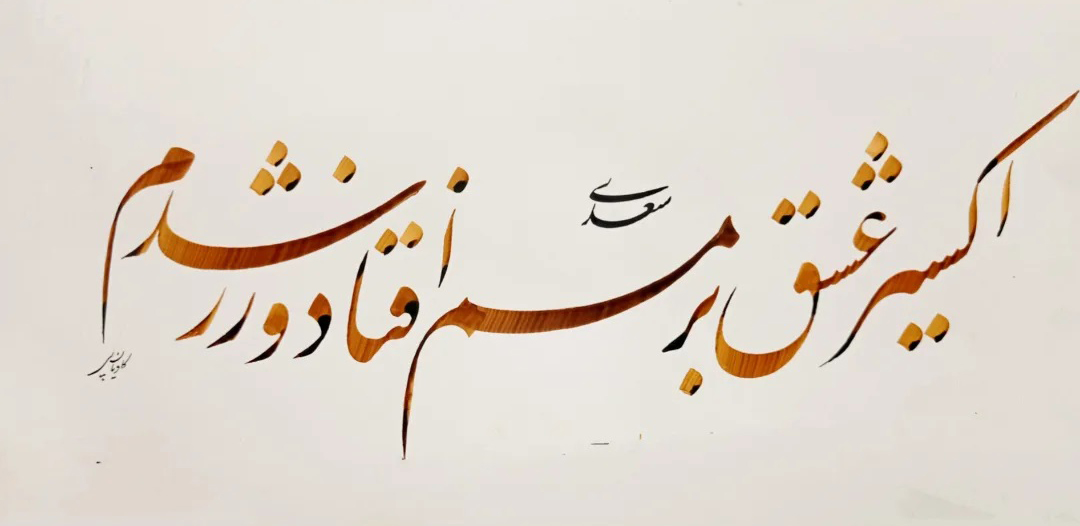 اکسیر عشق بر مسم افتاد و زر شدم
سعدی